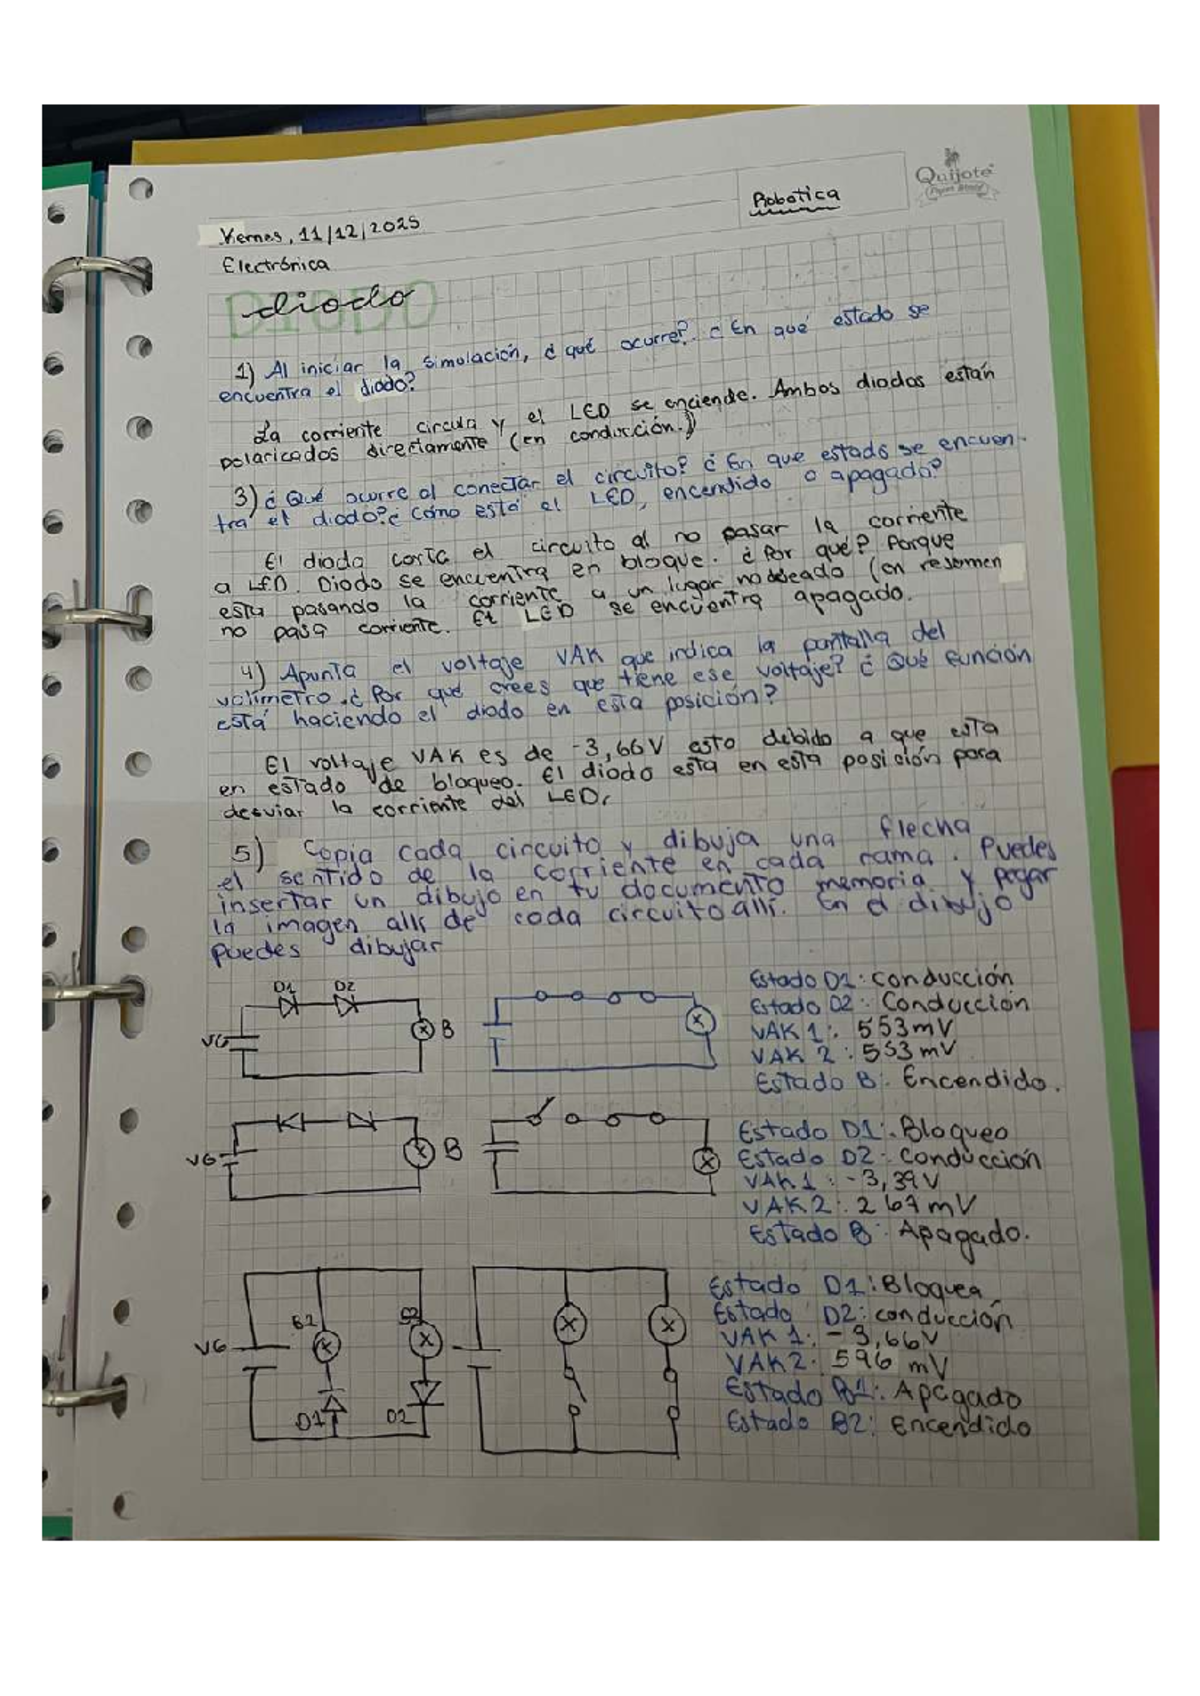 Quijote
Robotica
Viernes, 11/12/2025
Electrónica
diodo
1) Al iniciar la simulación, ¿qué ocurre? ¿En qué estado se
encuentra el diodo?
La corriente circula y el LED se enciende. Ambos diodos están
polaricados directamente (en conducción.)
3) ¿Qué ocurre al conectar el circuito? ¿En que estado se encuen-
tra el diodo? ¿Cómo está el LED, encendido o apagado?
El diodo corta el circuito al no pasar la corriente
a LED. Diodo se encuentra en bloque. ¿Por qué? Porque
esta pasando la corriente a un lugar no deseado (en resumen
no pasa corriente. El LED se encuentra apagado.
4) Apunta el voltaje VAK que indica la pantalla del
volímetro. ¿Por qué crees que tiene ese voltaje? ¿Qué función
está haciendo el diodo en esta posición?
El voltaje VAK es de -3,66V esto debido a que esta
en estado de bloqueo. El diodo esta en esta posición para
desviar la corriente del LED.
5) Copia cada circuito y dibuja una flecha
el sentido de la corriente en cada rama. Puedes
insertar un dibujo en tu documento memoria y pegar
la imagen alls de cada circuito allí. En el dibujo
puedes dibujar
D1 D2
VG
B
Estado D1: conducción
Estado D2: Conducción
VAK 1: 553mV
VAK 2: 553mV
Estado B: Encendido.
VG
B
Estado D1: Bloqueo
Estado D2: Conducción
VAK 1: -3,39V
VAK 2: 267mV
Estado B: Apagado.
VG
B2
D1
D2
Estado D1: Bloquea
Estado D2: conducción
VAK 1: -3,66V
VAK 2: 596 mV
Estado B1: Apagado
Estado B2: Encendido